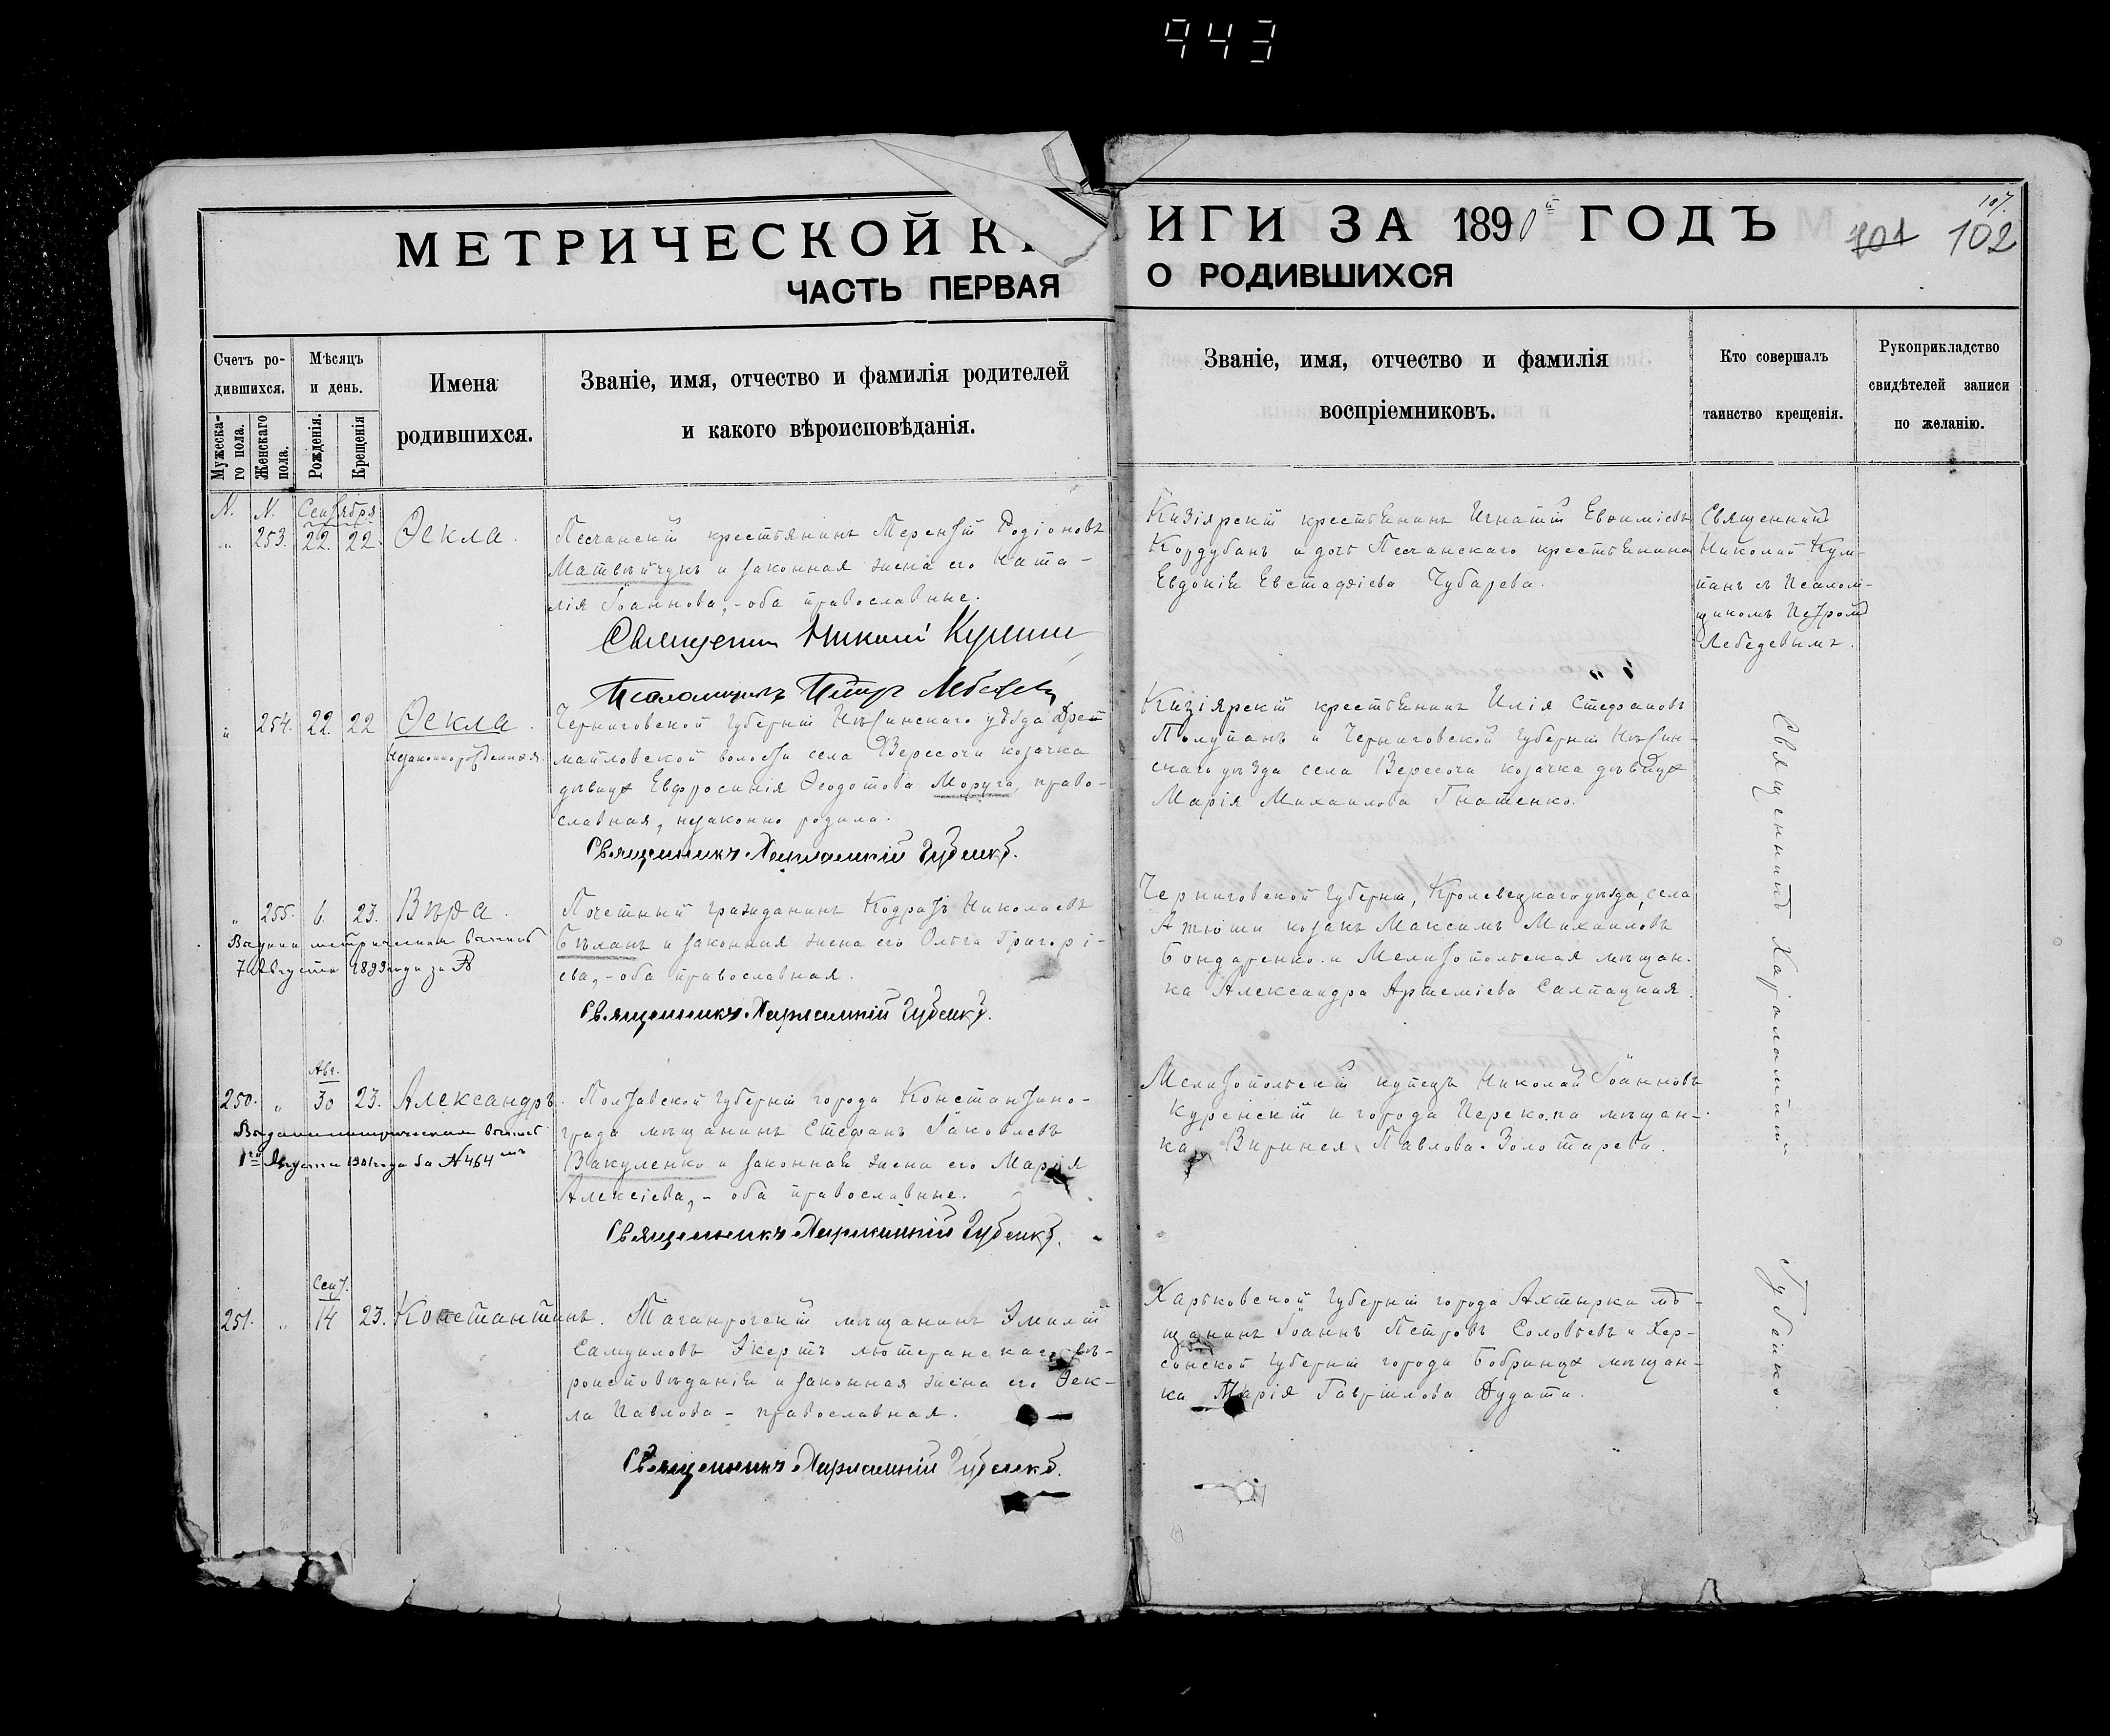 943
МЕТРИЧЕСКОЙ К
ИГИ ЗА 1890й ГОДЪ
107.
101 102
ЧАСТЬ ПЕРВАЯ
О РОДИВШИХСЯ
Счетъ ро-
дившихся.
Мужеска-
го пола.
Женскаго
пола.
Мѣсяцъ
и день.
Рожденія.
Крещенія
Имена
родившихся.
Званіе, имя, отчество и фамилія родителей
и какого вѣроисповѣданія.
Званіе, имя, отчество и фамилія
воспріемниковъ.
Кто совершалъ
таинство крещенія.
Рукоприкладство
свидѣтелей записи
по желанію.
N. N. Сентября
„ 253. 22. 22. Ѳекла.
Песчанскій крестьянинъ Терентій Родіоновъ
Матвѣйчукъ и законная жена его Ната-
лія Іоаннова, - оба православные.
Священникъ Николай
Псаломщикъ Петръ Лебедевъ
Кизіярскій крестьянинъ Игнатій Евѳиміевъ
Кордубанъ и дочь Песчанскаго крестьянина
Евдокія Евстафіева Чубарева.
Священникъ
Николай Кул-
панъ съ Псалом-
щикомъ Петромъ
Лебедевымъ.
„ 254. 22. 22 Ѳекла.
Незаконнорожденная.
Черниговской губерніи Нѣжинскаго уѣзда
майловской волости села Вересочи козачка
дѣвица Евфросинія Ѳеодотова Моруга, право-
славная, незаконно родила.
Священникъ Харлампій Губенко.
Кизіярскій крестьянинъ Илія Стефановъ
Полупанъ и Черниговской губерніи Нѣжин-
скаго уѣзда села Вересочи козачка дѣвица
Марія Михаилова Гнатенко.
Священникъ Харлампій
Губенко.
„ 255. 6. 23. Вѣра.
Выдана метрическая выпись
7 Августа 1899 года за №
Почетный гражданинъ Кодратъ Николаевъ
Бѣланъ и законная жена его Ольга Григорі-
ева, - оба православная.
Священникъ Харлампій Губенко.
Черниговской губерніи, Кролевецкаго уѣзда, села
Атюши козакъ Максимъ Михаиловъ
Бондаренко и Мелитопольская мѣщан-
ка Александра Артеміева Салпацкая.
Авг.
250. „ 30 23. Александръ.
Выдана метрическая выпись
1го Августа 1901 года за № 464
Полтавской губерніи города Константино-
града мѣщанинъ Стефанъ Іаковлевъ
Вакуленко и законная жена его Марія
Алексіева, - оба православные.
Священникъ Харлампій Губенко.
Мелитопольскій купецъ Николай Іоанновъ
Куренскій и города Перекопа мѣщан-
ка Виринея Павлова Золотарева.
Сент.
251. „ 14 23. Константинъ.
Таганрогскій мѣщанинъ Эмилій
Самуиловъ Экертъ лютеранскаго вѣ-
роисповѣданія и законная жена его Ѳек-
ла Павлова - православная.
Священникъ Харлампій Губенко.
Харьковской губерніи города Ахтырки мѣ-
щанинъ Іоаннъ Петровъ Соловьевъ и Хер-
сонской губерніи города Бобринца мѣщан-
ка Марія Гавріилова Дудати.